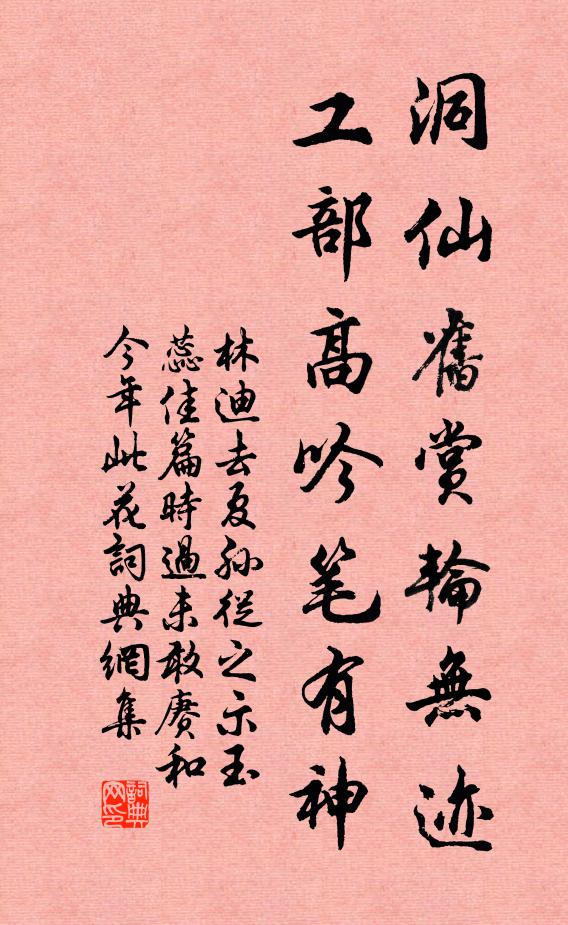 洞仙舊賞輪無迹
工部高吟笔有神
林迪去夏孙從之示玉
蕊佳篇時過未敢赓和
今年此花詞典網集
詞典
网印